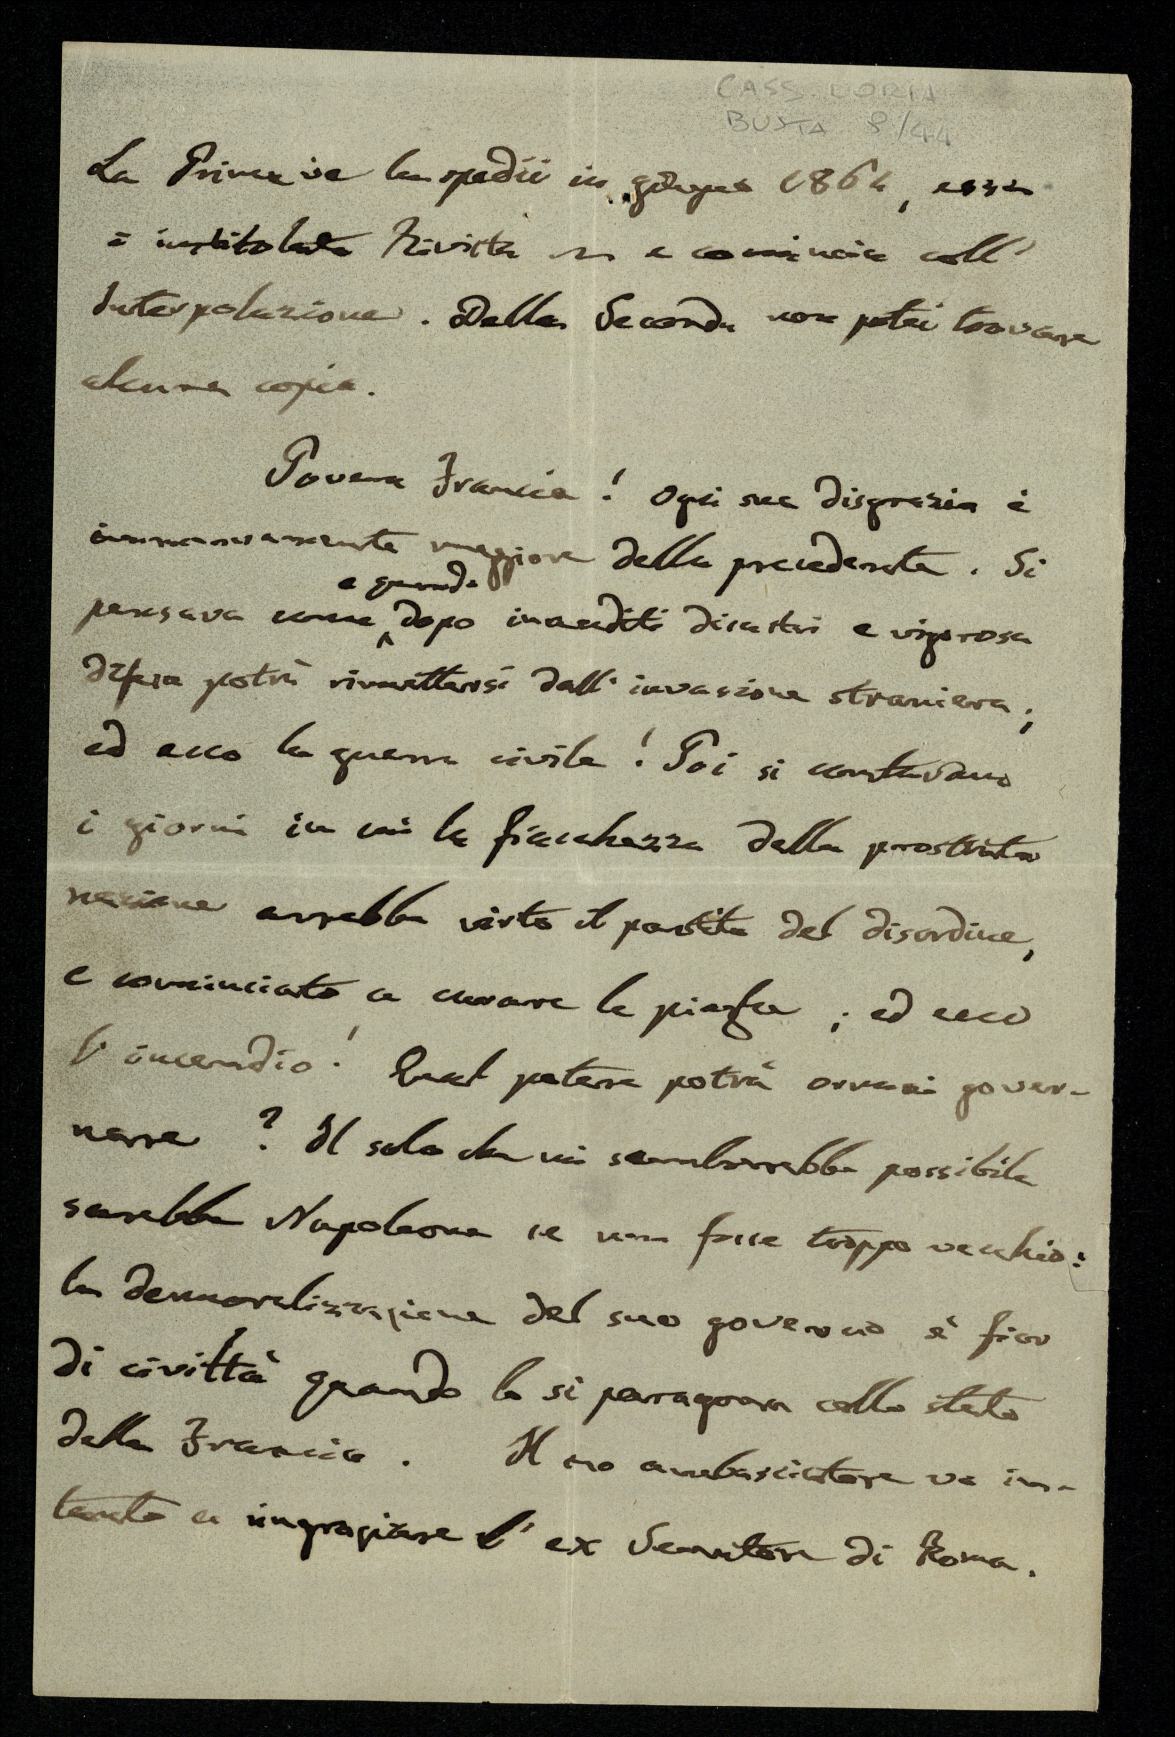 CASS. DORIA
BUSTA 8/44
La Prima ve la spedii in giugno 1864, essa
è intitolata Rivista e comincia coll'
Interpolazione. Della Seconda non potei trovare
alcuna copia.
Povera Francia! Ogni sua disgrazia è
immensamente maggiore della precedente. Si
e quando
pensava come dopo inauditi disastri e vigorosa
difesa potrà rimettersi dall'invasione straniera;
ed ecco la guerra civile! Poi si contavano
i giorni in cui la fiacchezza della prostrata
nazione avrebbe visto il partito del disordine,
e cominciato a curare la piaga; ed ecco
l'incendio! Qual potere potrà ormai gover-
nare? Il solo che mi sembrerebbe possibile
sarebbe Napoleone se non fosse troppo vecchio:
la demoralizzazione del suo governo è fior
di civiltà quando la si paragona collo stato
della Francia. Il suo ambasciatore va in-
tanto a ringraziare l'ex Senatore di Roma.